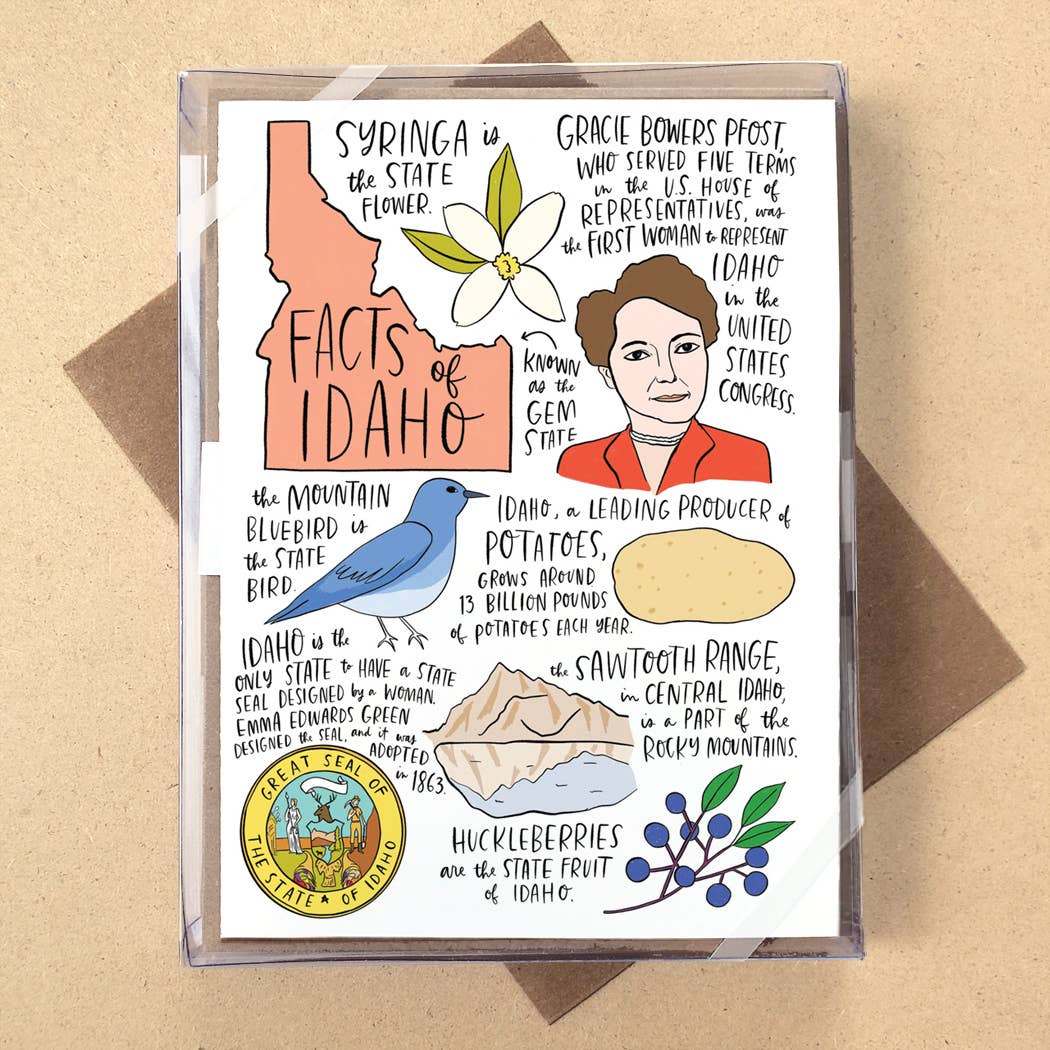 SYRINGA is
the STATE
FLOWER.
GRACIE BOWERS PFOST,
WHO SERVED FIVE TERMS
in the U.S. HOUSE of
REPRESENTATIVES, was
the FIRST WOMAN to REPRESENT
IDAHO
in the
UNITED
STATES
CONGRESS.
FACTS of
IDAHO
KNOWN
as the
GEM
STATE
the MOUNTAIN
BLUEBIRD is
the STATE
BIRD.
IDAHO, a LEADING PRODUCER of
POTATOES,
GROWS AROUND
13 BILLION POUNDS
of POTATOES EACH YEAR.
IDAHO is the
ONLY STATE to HAVE a STATE
SEAL DESIGNED by a WOMAN.
EMMA EDWARDS GREEN
DESIGNED the SEAL, and it was
ADOPTED
in 1863.
the SAWTOOTH RANGE,
in CENTRAL IDAHO,
is a PART of the
ROCKY MOUNTAINS.
GREAT SEAL OF
THE STATE OF IDAHO
HUCKLEBERRIES
are the STATE FRUIT
of IDAHO.